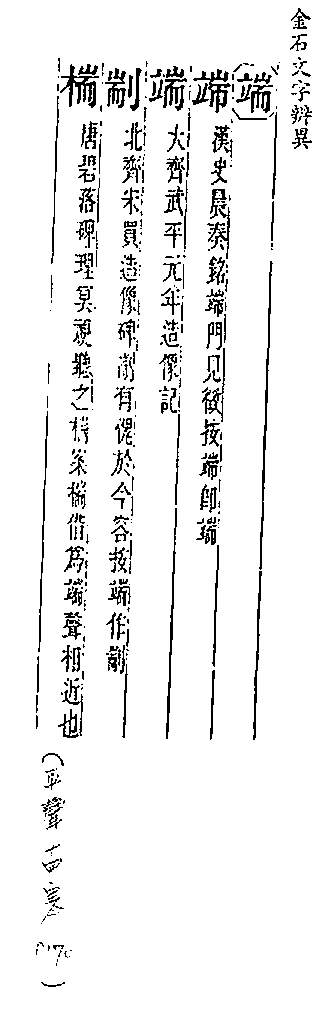 金石文字辨異
端
端 漢史晨奏銘端門見徵按端即端
端 大齊武平元年造像記
剬 北齊宋買造像碑剬有僾於今容按端作剬
椯 唐碧落碑理冥視聽之椯案椯借爲端聲相近也
(平聲十四寒